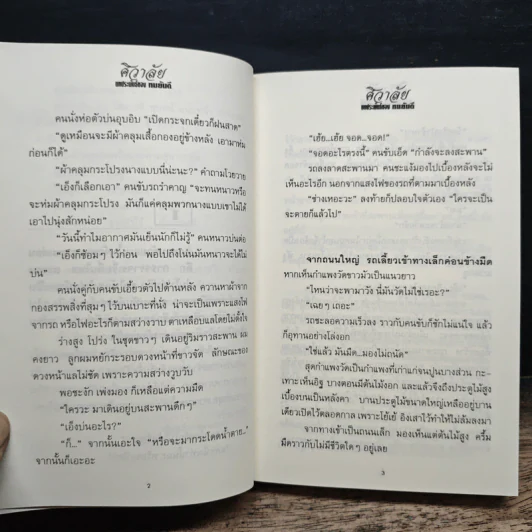 ศิวาลัย
คนนั่งห่อตัวบ่นอุบอิบ “เปิดกระจกเดี๋ยวก็ฝนสาด”
“ดูเหมือนจะมีผ้าคลุมเสื้อกองอยู่ข้างหลัง เอามาห่ม
ก่อนก็ได้”
“ผ้าคลุมกระโปรงนางแบบนี่น่ะนะ?” คำถามโวยวาย
“เอ็งก็เลือกเอา” คนขับรถว่าคาญ “จะทนหนาวหรือ
จะห่มผ้าคลุมกระโปรง มันก็แค่คลุมพวกนางแบบเขาไม่ได้
เอาไปนุ่งสักหน่อย”
“วันนี้ทำไมอากาศมันเย็นนักก็ไม่รู้” คนหนาวบ่นต่อ
“เอ็งก็ซ้อมๆ ไว้ก่อน พอไปถึงโน่นมันหนาวจะได้ไม่
บ่น”
คนนั่งคู่กับคนขับเอี้ยวตัวไปด้านหลัง ควานหาผ้าจาก
กองสรรพสิ่งที่สุมๆ ไว้บนเบาะที่นั่ง น่าจะเป็นเพราะแสงไฟ
จากรถ หรือไฟอะไรก็ตามสว่างวาบ ตาเหลือบแลโดยไม่ตั้งใจ
ร่างสูง โปร่ง ในชุดขาวๆ เดินอยู่ริมราวสะพาน ผม
คงยาว ลูกผมหยักระกรอบดวงหน้าที่ขาวจัด ลักษณะของ
ดวงหน้าแลไม่ชัด เพราะความสว่างวูบวับ
พอชะงัก เพ่งมอง ก็เหลือแต่ความมืด
“ใครวะ มาเดินอยู่บนสะพานดึกๆ”
“เอ็งบ่นอะไร?”
“ก็...” จากนั้นเอะใจ “หรือจะมากระโดดน้ำตาย...”
จากนั้นก็เอะอะ
2
ศิวาลัย
“เฮ้ย...เฮ้ย จอด...จอด!”
“จอดอะไรตรงนี้” คนขับเอ็ด “กำลังจะลงสะพาน”
รถลงลาดสะพานมา คนชะแง้มองไปเบื้องหลังจะไม่
เห็นอะไรอีก นอกจากแสงไฟของรถที่ตามมาเบื้องหลัง
“ช่างเหอะวะ” ลงท้ายก็ปลอบใจตัวเอง “ใครจะเป็น
จะตายก็แล้วไป”
จากถนนใหญ่ รถเลี้ยวเข้าทางเล็กค่อนข้างมืด
หากเห็นกำแพงวัดขาวมัวเป็นแนวยาว
“ไหนว่าจะพามาวัง นี่มันวัดไม่ใช่เรอะ?”
“เฉยๆ เถอะ”
รถชะลอความเร็วลง ราวกับคนขับก็ชักไม่แน่ใจ แล้ว
ก็อุทานอย่างโล่งอก
“ใช่แล้ว มันมืด...มองไม่ถนัด”
สุดกำแพงวัดเป็นกำแพงที่เก่าแก่จนปูนบางส่วน กะ-
เทาะเห็นอิฐ บางตอนมีต้นไม้งอก และแล้วจึงถึงประตูไม้สูง
เบื้องบนเป็นหลังคา บานประตูไม้ขนาดใหญ่เหลืออยู่บาน
เดียวเปิดไว้ตลอดกาล เพราะโย้เย้ อิงเสาไว้ทำให้ไม่ล้มลงมา
จากทางเข้าเป็นถนนเล็ก มองเห็นแต่ต้นไม้สูง ครึ้ม
มืดราวกับไม่มีชีวิตใดๆ อยู่เลย
3